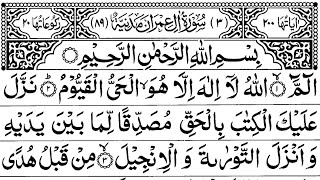 اٰیَاتُهَا ٢٠٠ (٣) سُوْرَةُ اٰلِ عِمْرٰنَ مَدَنِیَّةٌ (٨٩) رُكُوْعَاتُهَا ٢٠
بِسْمِ اللّٰهِ الرَّحْمٰنِ الرَّحِیْمِ
الٓمَّٓ ۙ﴿١﴾ اللّٰهُ لَاۤ اِلٰهَ اِلَّا هُوَ ۙ الْحَیُّ الْقَیُّوْمُ ؕ﴿٢﴾ نَزَّلَ
عَلَیْكَ الْكِتٰبَ بِالْحَقِّ مُصَدِّقًا لِّمَا بَیْنَ یَدَیْهِ
وَ اَنْزَلَ التَّوْرٰىةَ وَ الْاِنْجِیْلَ ۙ﴿٣﴾ مِنْ قَبْلُ هُدًی